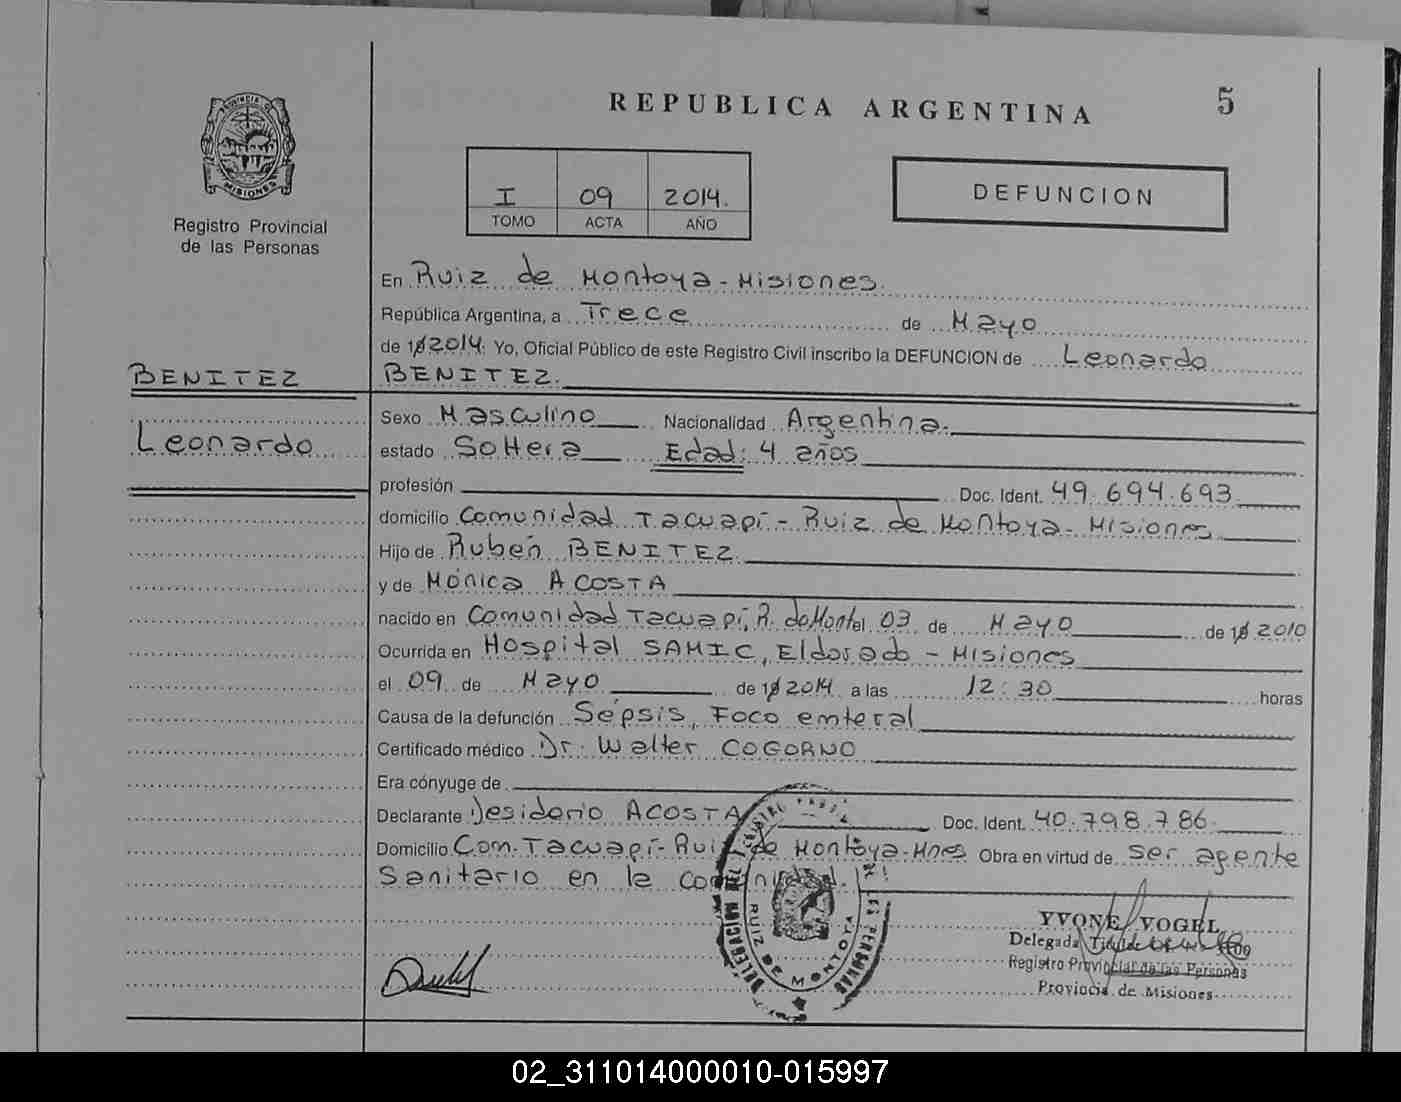 REPUBLICA ARGENTINA
5
PROVINCIA DE
MISIONES
Registro Provincial
de las Personas
I 09 2014.
TOMO ACTA AÑO
DEFUNCION
En Ruiz de Montoya - Misiones.
República Argentina, a Trece de Mayo
de 19 2014. Yo, Oficial Público de este Registro Civil inscribo la DEFUNCION de Leonardo
BENITEZ.
BENITEZ
Leonardo
Sexo Masculino Nacionalidad Argentina.
estado Soltera Edad: 4 años
profesión Doc. Ident. 49.694.693.
domicilio Comunidad Tacuapí - Ruiz de Montoya - Misiones
Hijo de Rubén BENITEZ
y de Mónica ACOSTA
nacido en Comunidad Tacuapí, R. de Mont el 03 de Mayo de 19 2010
Ocurrida en Hospital SAMIC, Eldorado - Misiones
el 09 de Mayo de 19 2014 a las 12:30 horas
Causa de la defunción Sépsis, Foco emteral
Certificado médico Dr. Walter COGORNO
Era cónyuge de
Declarante Desiderio ACOSTA Doc. Ident. 40.798.786
Domicilio Com. Tacuapí - Ruiz de Montoya - Mnes Obra en virtud de ser agente
Sanitario en la comunidad.
DELEGACION DEL REGISTRO PROV. DE LAS PERSONAS
RUIZ DE MONTOYA
YVONE VOGEL
Delegada
Registro Provincial de las Personas
Provincia de Misiones
02_311014000010-015997